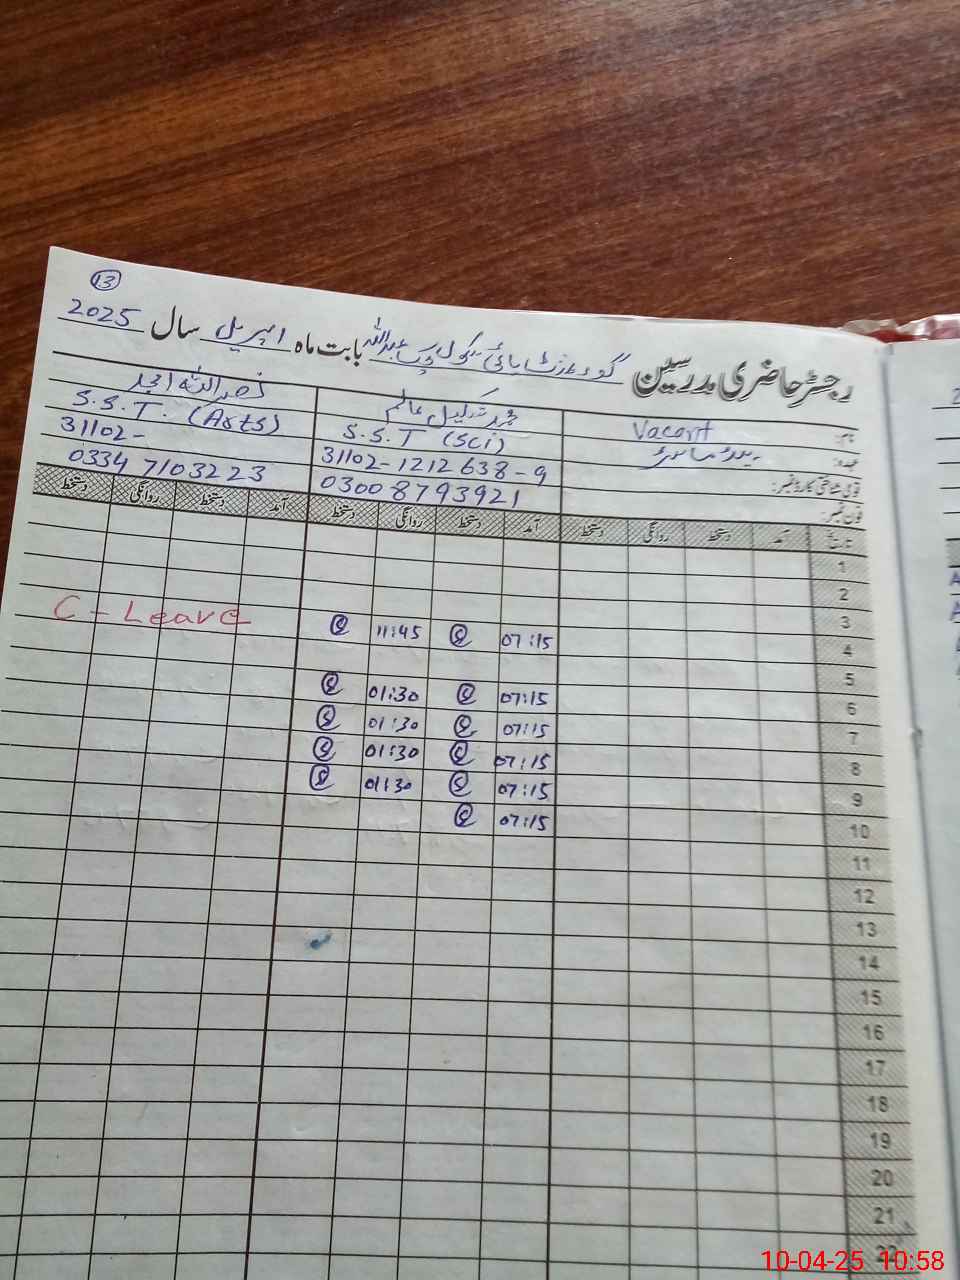 13
رجسٹر حاضری مدرسین گورنمنٹ ہائی سکول چک عبداللہ بابت ماہ اپریل سال 2025
نام: Vacant
محمد شکیل عالم
نصر اللہ امجد
عہدہ: ہیڈ ماسٹر
S.S.T (Sci)
S.S.T. (Arts)
قومی شناختی کارڈ نمبر:
31102-1212638-9
31102-
فون نمبر:
03008793921
0334 7103223
تاریخ آمد دستخط روانگی دستخط آمد دستخط روانگی دستخط آمد دستخط روانگی دستخط
1
2
3
C-Leave
4 07:15 11:45
5
6 07:15 01:30
7 07:15 01:30
8 07:15 01:30
9 07:15 01:30
10 07:15
11
12
13
14
15
16
17
18
19
20
21
22
10-04-25 10:58